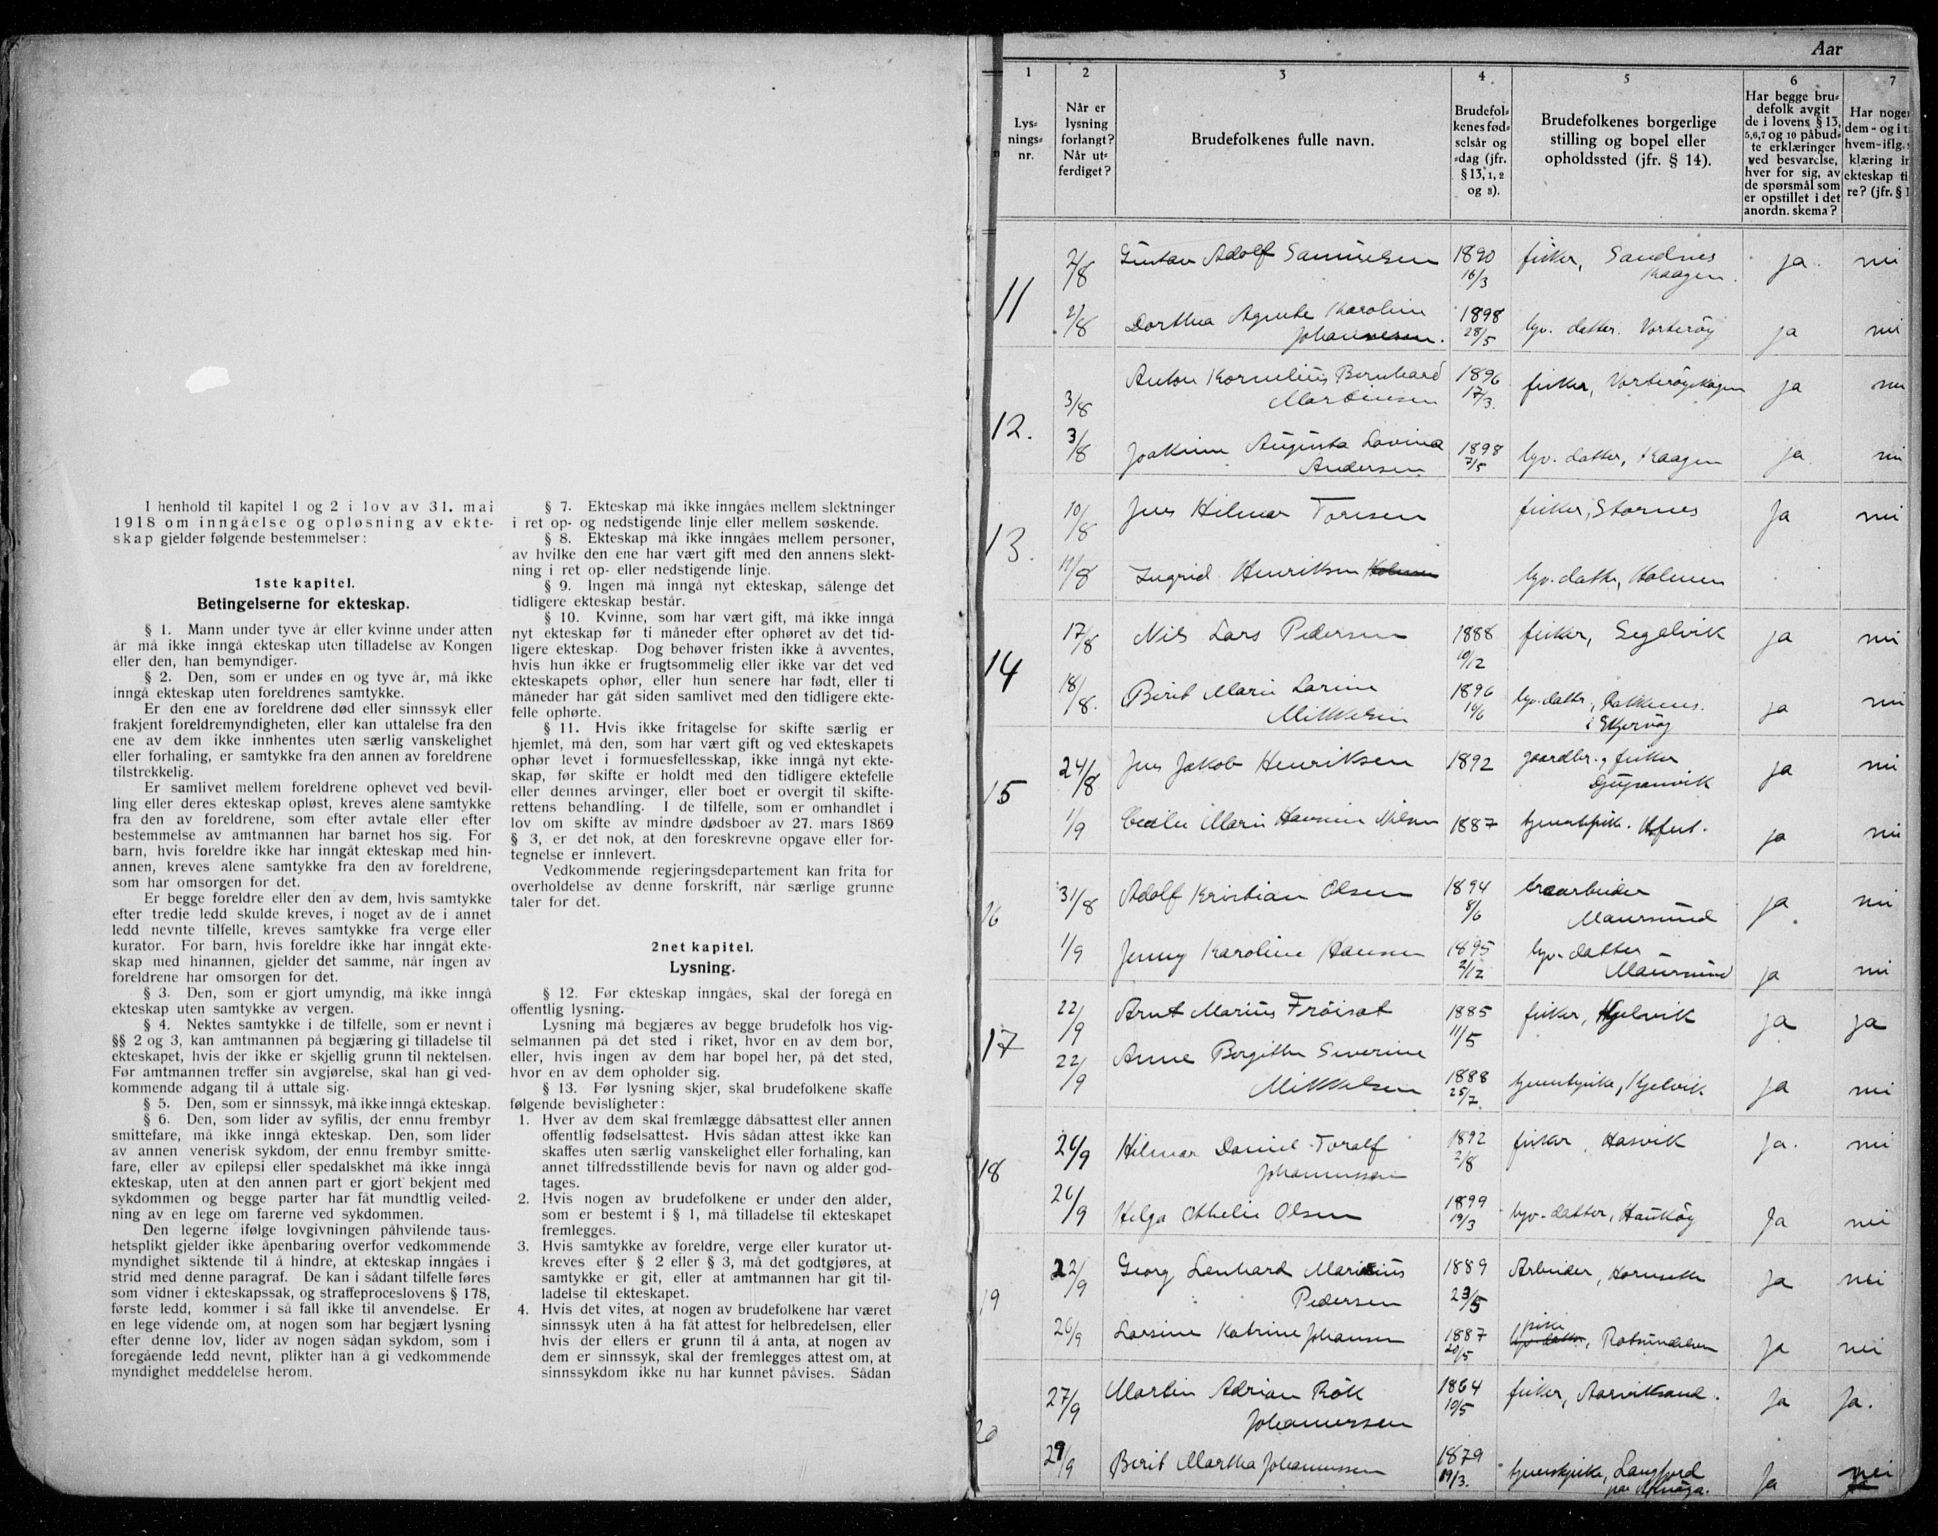 I henhold til kapitel 1 og 2 i lov av 31. mai
1918 om inngåelse og opløsning av ekte-
skap gjelder følgende bestemmelser:
1ste kapitel.
Betingelserne for ekteskap.
§ 1. Mann under tyve år eller kvinne under atten
år må ikke inngå ekteskap uten tilladelse av Kongen
eller den, han bemyndiger.
§ 2. Den, som er under en og tyve år, må ikke
inngå ekteskap uten foreldrenes samtykke.
Er den ene av foreldrene død eller sinnssyk eller
frakjent foreldremyndigheten, eller kan uttalelse fra den
ene av dem ikke innhentes uten særlig vanskelighet
eller forhaling, er samtykke fra den annen av foreldrene
tilstrekkelig.
Er samlivet mellem foreldrene ophevet ved bevil-
ling eller deres ekteskap opløst, kreves alene samtykke
fra den av foreldrene, som efter avtale eller efter
bestemmelse av amtmannen har barnet hos sig. For
barn, hvis foreldre ikke har inngåt ekteskap med hin-
annen, kreves alene samtykke fra den av foreldrene,
som har omsorgen for det.
Er begge foreldre eller den av dem, hvis samtykke
efter tredje ledd skulde kreves, i noget av de i annet
ledd nevnte tilfelle, kreves samtykke fra verge eller
kurator. For barn, hvis foreldre ikke har inngåt ekte-
skap med hinannen, gjelder det samme, når ingen av
foreldrene har omsorgen for det.
§ 3. Den, som er gjort umyndig, må ikke inngå
ekteskap uten samtykke av vergen.
§ 4. Nektes samtykke i de tilfelle, som er nevnt i
§§ 2 og 3, kan amtmannen på begjæring gi tilladelse til
ekteskapet, hvis der ikke er skjellig grunn til nektelsen.
Før amtmannen treffer sin avgjørelse, skal han gi ved-
kommende adgang til å uttale sig.
§ 5. Den, som er sinnssyk, må ikke inngå ekteskap.
§ 6. Den, som lider av syfilis, der ennu frembyr
smittefare, må ikke inngå ekteskap. Den, som lider
av annen venerisk sykdom, der ennu frembyr smitte-
fare, eller av epilepsi eller spedalskhet må ikke inngå
ekteskap, uten at den annen part er gjort bekjent med
sykdommen og begge parter har fåt mundtlig veiled-
ning av en lege om farerne ved sykdommen.
Den legerne ifølge lovgivningen påhvilende taus-
hetsplikt gjelder ikke åpenbaring overfor vedkommende
myndighet siktende til å hindre, at ekteskap inngåes i
strid med denne paragraf. De kan i sådant tilfelle føres
som vidner i ekteskapssak, og straffeproceslovens § 178,
første ledd, kommer i så fall ikke til anvendelse. Er
en lege vidende om, at nogen som har begjært lysning
efter denne lov, lider av nogen sådan sykdom, som i
foregående ledd nevnt, plikter han å gi vedkommende
myndighet meddelelse herom.
§ 7. Ekteskap må ikke inngåes mellem slektninger
i ret op- og nedstigende linje eller mellem søskende.
§ 8. Ekteskap må ikke inngåes mellem personer,
av hvilke den ene har vært gift med den annens slekt-
ning i ret op- eller nedstigende linje.
§ 9. Ingen må inngå nyt ekteskap, sålenge det
tidligere ekteskap består.
§ 10. Kvinne, som har vært gift, må ikke inngå
nyt ekteskap før ti måneder efter ophøret av det tid-
ligere ekteskap. Dog behøver fristen ikke å avventes,
hvis hun ikke er frugtsommelig eller ikke var det ved
ekteskapets ophør, eller hun senere har født, eller ti
måneder har gåt siden samlivet med den tidligere ekte-
felle ophørte.
§ 11. Hvis ikke fritagelse for skifte særlig er
hjemlet, må den, som har vært gift og ved ekteskapets
ophør levet i formuesfellesskap, ikke inngå nyt ekte-
skap, før skifte er holdt med den tidligere ektefelle
eller dennes arvinger, eller boet er overgit til skifte-
rettens behandling. I de tilfelle, som er omhandlet i
lov om skifte av mindre dødsboer av 27. mars 1869
§ 3, er det nok, at den foreskrevne opgave eller for-
tegnelse er innlevert.
Vedkommende regjeringsdepartement kan frita for
overholdelse av denne forskrift, når særlige grunne
taler for det.
2net kapitel.
Lysning.
§ 12. Før ekteskap inngåes, skal der foregå en
offentlig lysning.
Lysning må begjæres av begge brudefolk hos vig-
selmannen på det sted i riket, hvor en av dem bor,
eller, hvis ingen av dem har bopel her, på det sted,
hvor en av dem opholder sig.
§ 13. Før lysning skjer, skal brudefolkene skaffe
følgende bevisligheter:
1. Hver av dem skal fremlægge dåbsattest eller annen
offentlig fødselsattest. Hvis sådan attest ikke kan
skaffes uten særlig vanskelighet eller forhaling, kan
annet tilfredsstillende bevis for navn og alder god-
tages.
2. Hvis nogen av brudefolkene er under den alder,
som er bestemt i § 1, må tilladelse til ekteskapet
fremlegges.
3. Hvis samtykke av foreldre, verge eller kurator ut-
kreves efter § 2 eller § 3, må det godtgjøres, at
samtykke er git, eller at amtmannen har git til-
ladelse til ekteskapet.
4. Hvis det vites, at nogen av brudefolkene har været
sinnssyk uten å ha fåt attest for helbredelsen, eller
hvis der ellers er grunn til å anta, at nogen av
dem er sinnssyk, skal der fremlegges attest om, at
sinnssykdom ikke nu har kunnet påvises. Sådan
Aar
1 2 3 4 5 6 7
Lys-
nings-
nr.
Når er
lysning
forlangt?
Når ut-
ferdiget?
Brudefolkenes fulle navn.
Brudefol-
kenes fød-
selsår og
-dag (jfr.
§ 13, 1, 2
og 3).
Brudefolkenes borgerlige
stilling og bopel eller
opholdssted (jfr. § 14).
Har begge bru-
defolk avgit
de i lovens § 13,
5, 6, 7 og 10 påbud-
te erklæringer
ved besvarelse,
hver for sig, av
de spørsmål som
er opstillet i det
anordn. skema?
Har noge
dem - og i t
hvem - iflg.
klæring i
ekteskap ti
re? (jfr. §
11 2/8 Gustav Adolf Samuelsen 1890 16/3 fisker, Sandnes Kaagen ja nei
2/8 Dorthea Agnete Karoline Johannesen. 1898 28/5 hjv. datter. Vorterøy ja nei
12. 3/8 Anton Kornelius Bernhard Martinsen 1896 17/3. fisker, Vorterøyskagen ja nei
3/8 Joakime Augusta Lovina Andersen 1898 7/5 hjv. datter, Kaagen ja nei
13. 10/8 Jens Hilmar Toresen fisker, Stornes Ja nei
11/8 Ingrid Henriksen hjv. datter, Holmen
14 17/8 Nils Lars Pedersen 1888 10/12 fisker, Segelvik ja nei
18/8. Berit Marie Larine Mikkelsen 1896 19/6 hjv. datter, i Skjervøy ja nei
15 24/8 Jens Jakob Henriksen 1892 gaardbr. fisker Djupanvik ja nei
1/9 Cecilie Marie Nilsen 1887 tjenestepike. ja nei
16 31/8 Adolf Kristian Olsen 1894 8/6 Maursund ja nei
1/9 Jenny Karoline Hansen 1895 2/12 hjv. datter Maursund ja nei
17 22/9 Arnt Marius Frøiset 1885 11/5 fisker, Kjelvik ja ja
22/9 Anne Bergitte Severine Mikkelsen 1888 25/7. tjenestepike, Kjelvik Ja nei
18 26/9 Hilmar Daniel Toralf Johannessen 1892 2/8 fisker, Hasvik Ja. nei
26/9 Helga Othelie Olsen 1899 19/3 hjv. datter, Haukøy Ja nei
19 22/9 Georg Lenhard Marinius Pedersen 1889 23/5 Arbeider, ja nei
26/9 Larsine Katrine Johansen 1887 20/5 pike, Rotsundelven Ja nei
20 27/9 Martin Adrian Røk Johannessen 1864 10/5 fisker, Aarviksand. Ja Ja.
29/9 Berit Martha Johannessen 1879 19/3. tjenestepike, Langfjord paa Arnøya. Ja nei